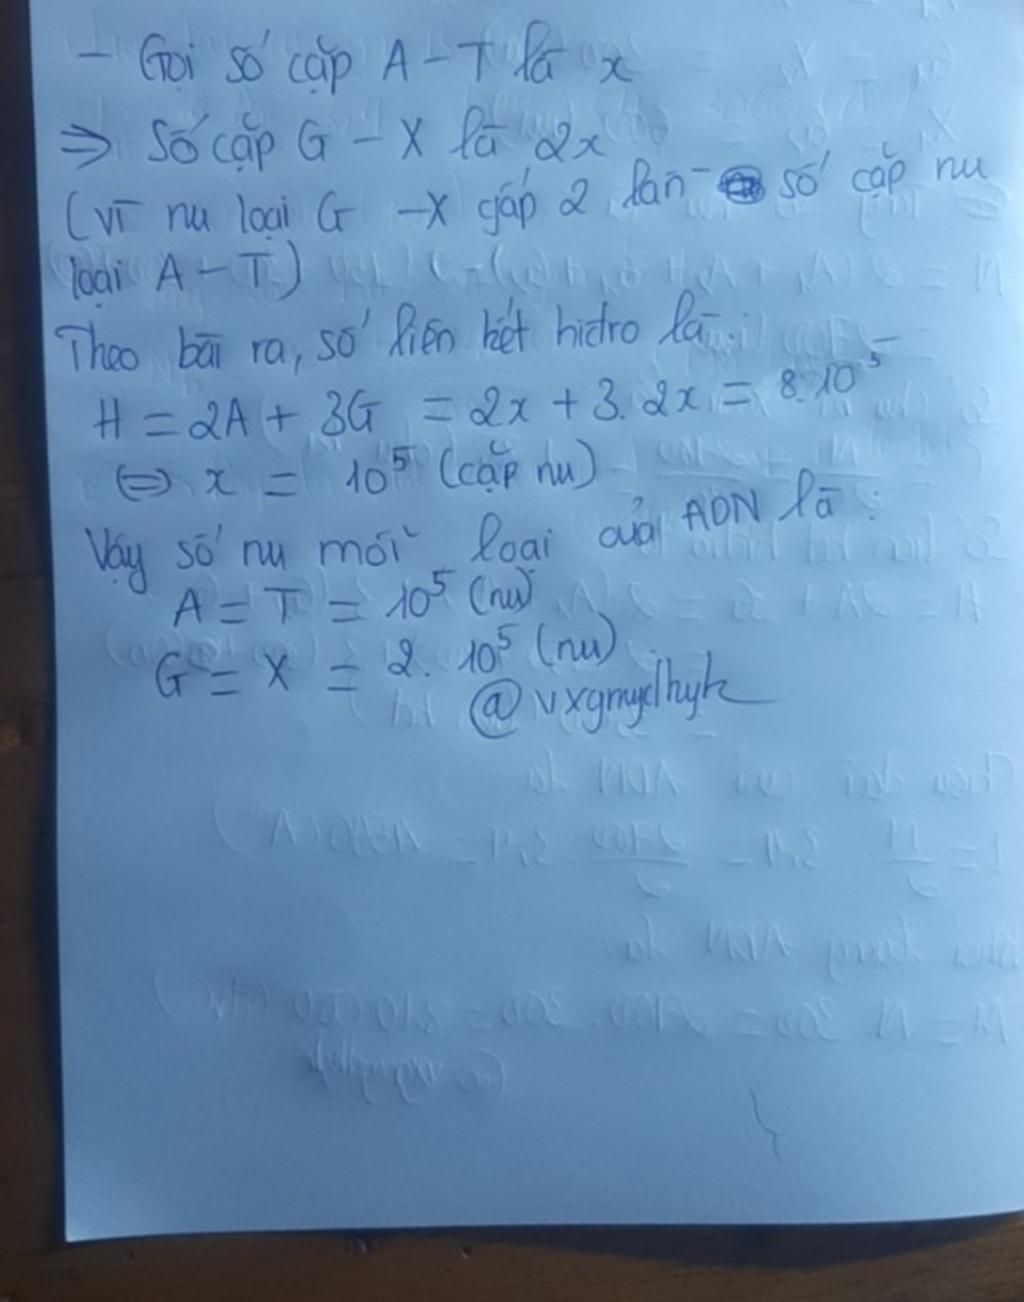 - Gọi số cặp A - T là x
⇒ Số cặp G - X là 2x
(vì nu loại G - X gấp 2 lần số cặp nu
loại A - T)
Theo bài ra, số liên kết hiđro là:
H = 2A + 3G = 2x + 3. 2x = 8.10⁵
⇔ x = 10⁵ (cặp nu)
Vậy số nu mỗi loại của ADN là:
A = T = 10⁵ (nu)
G = X = 2. 10⁵ (nu)